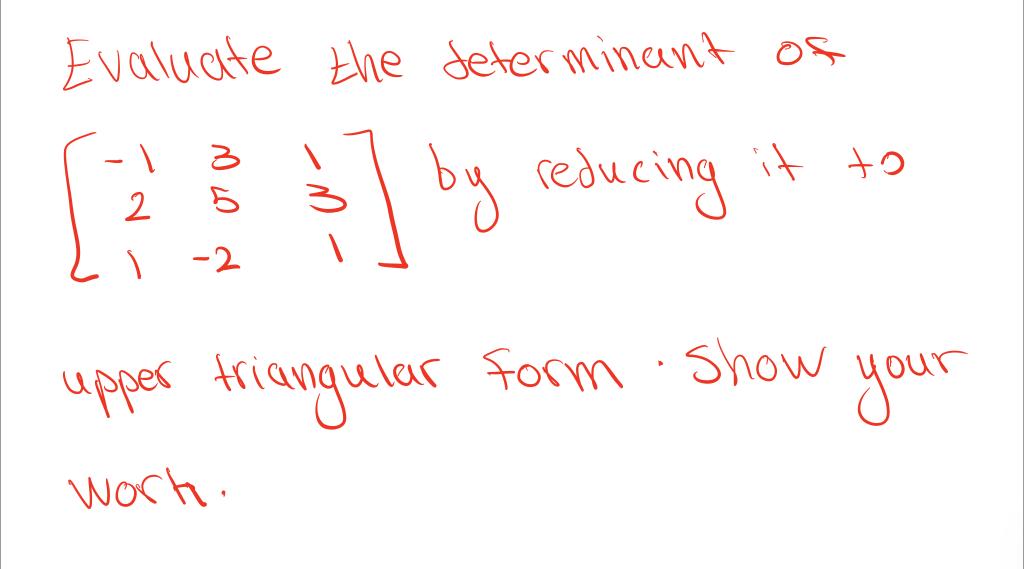 Evaluate the determinant of
[ -1 3 1 ] by reducing it to
2 5 3
1 -2 1
upper triangular form. Show your
work.